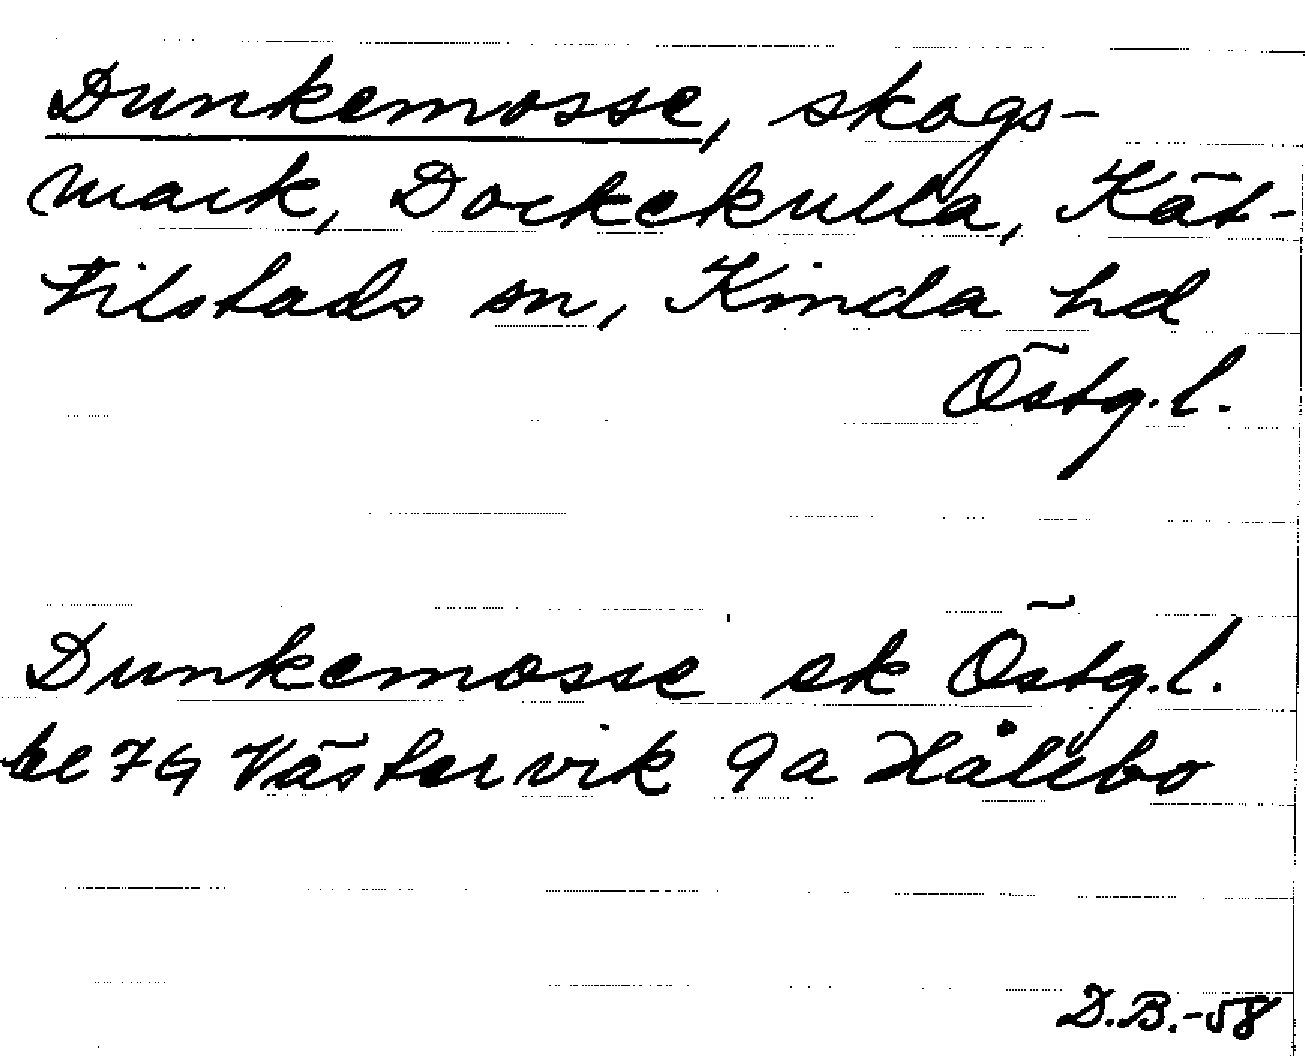 Dunkemosse, skogs-
mark, Dockekulla, Kät-
tilstads sn, Kinda hd
Östg. l.
Dunkemosse ek Östg. l.
bl 7G Västervik 9a Hålebo
D.B.-58